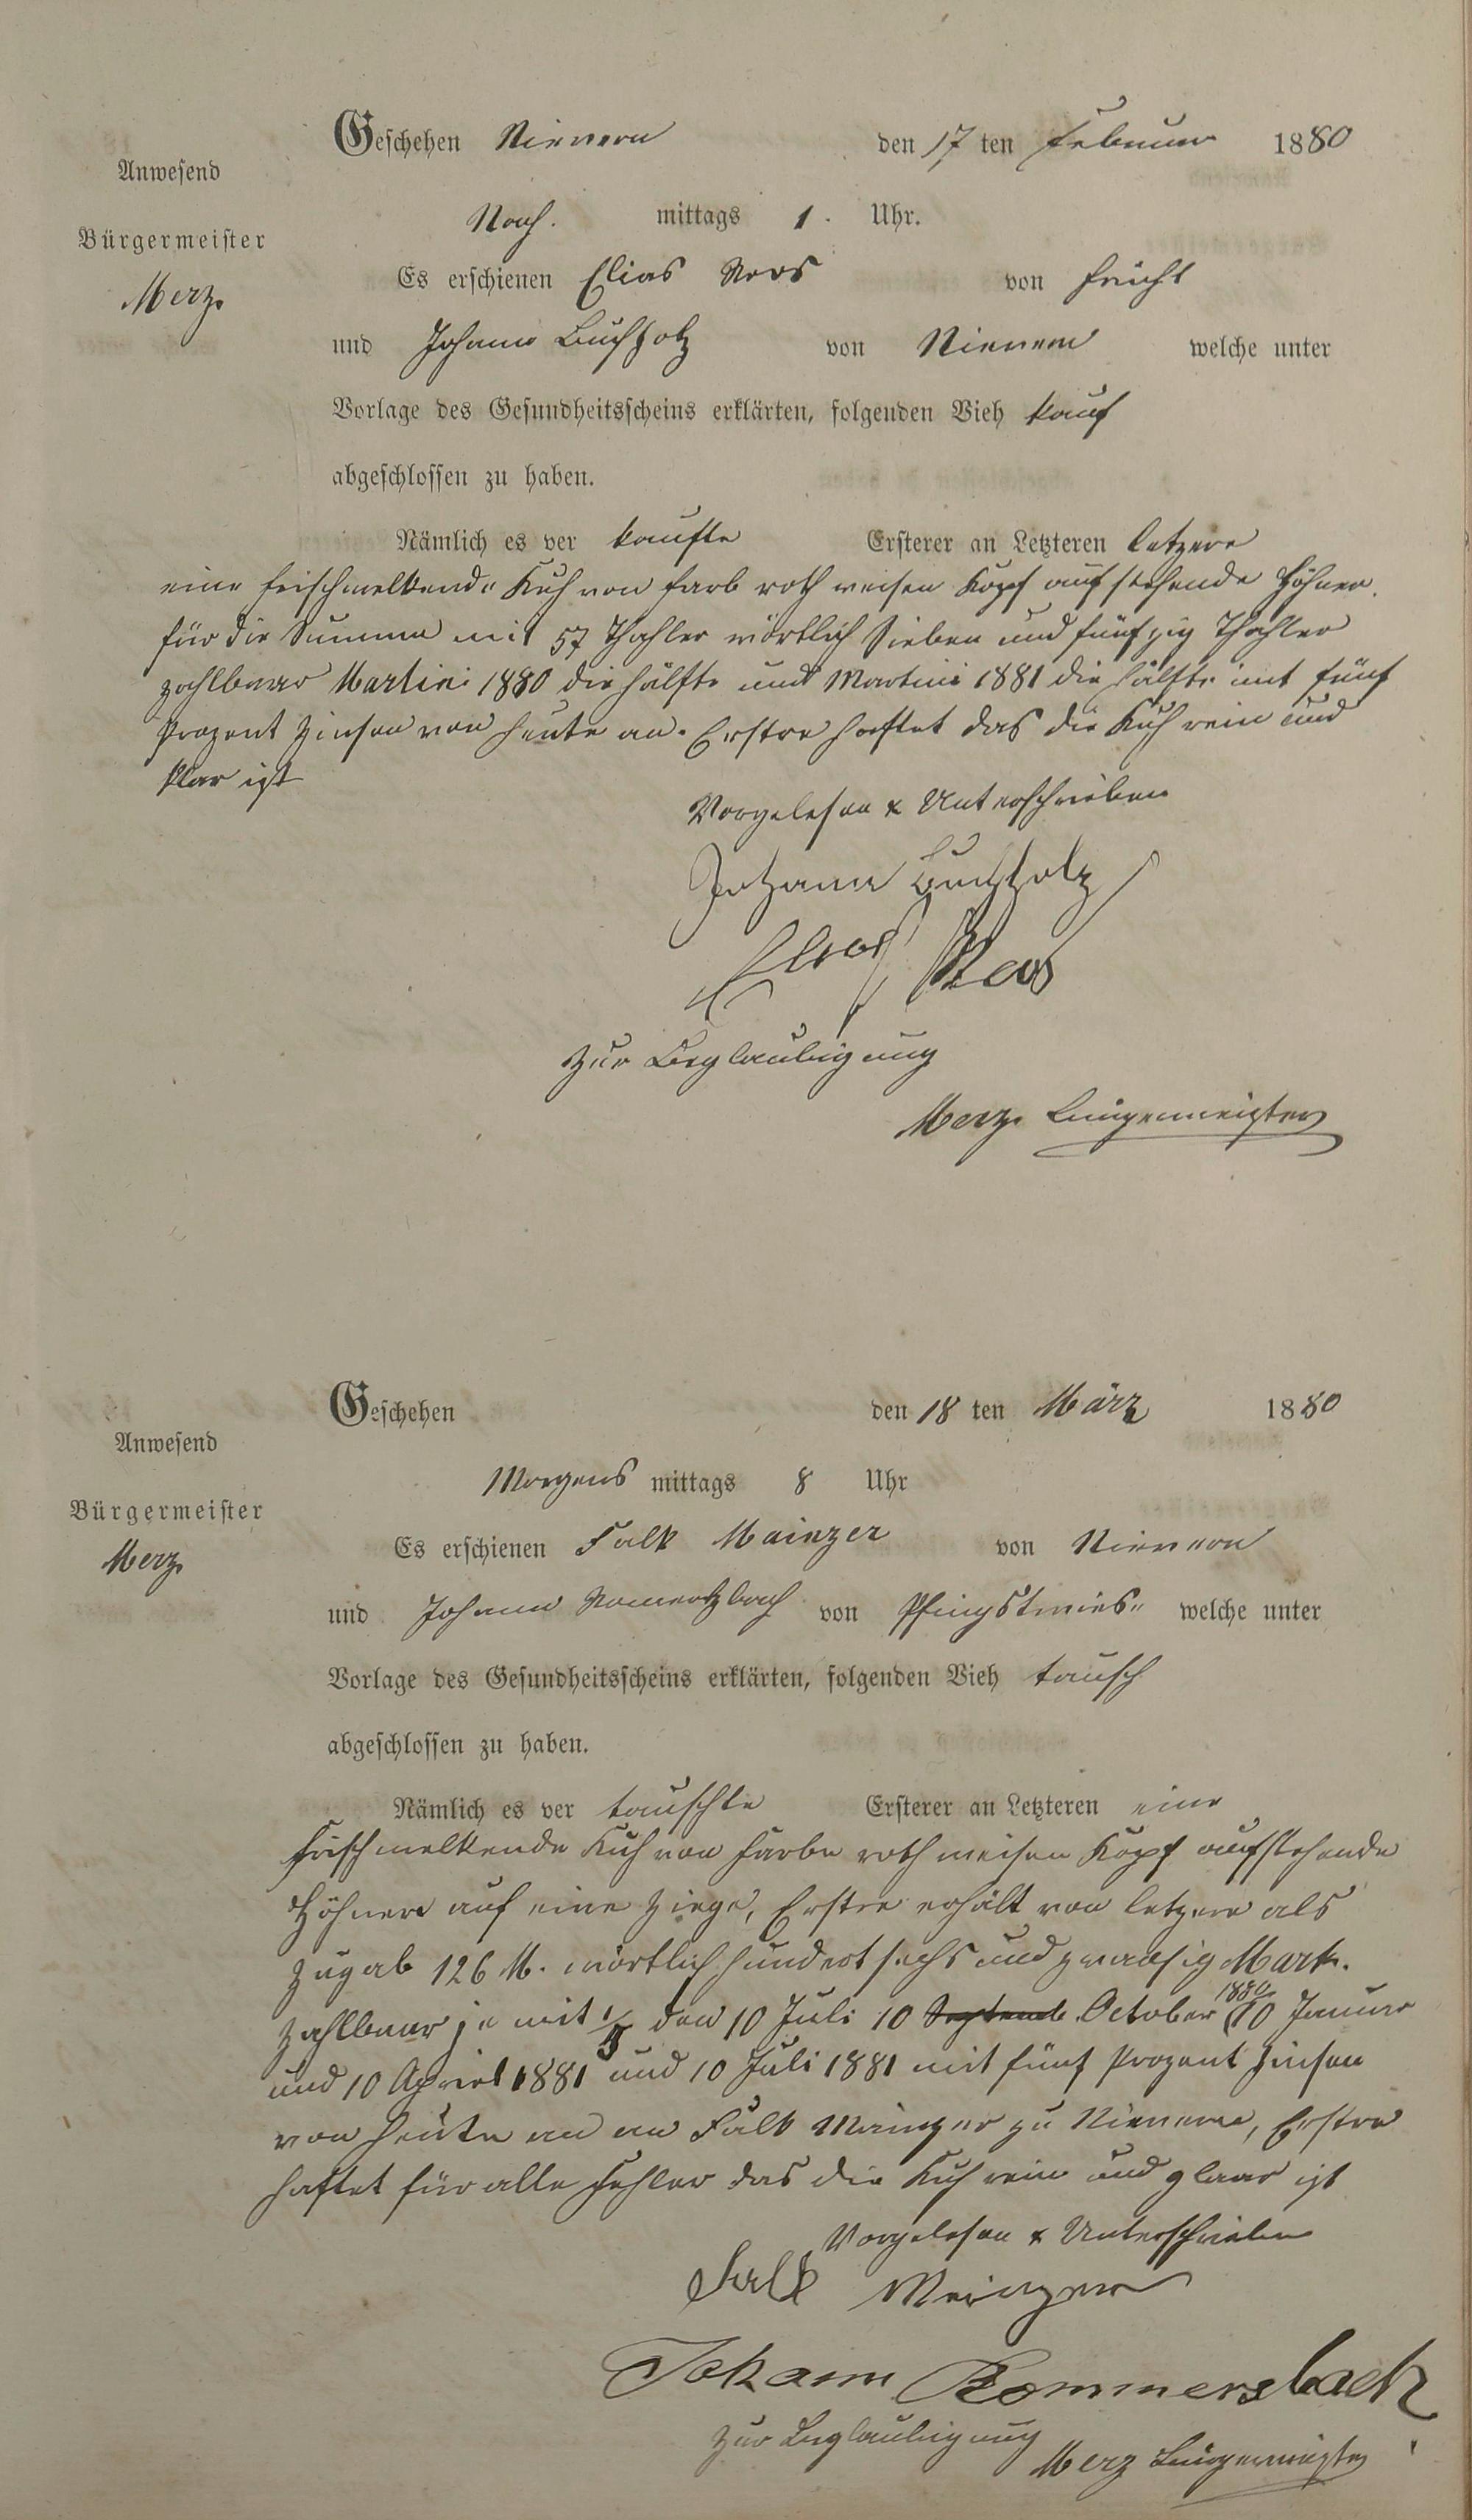 Geschehen Nievern den 17 ten Februar 1880
Anwesend
Nach. mittags 1. Uhr.
Bürgermeister
Es erschienen Elias Roos von Frücht
Merz.
und Johann Buchholz von Nievern welche unter
Vorlage des Gesundheitsscheins erklärten, folgenden Vieh kauf
abgeschlossen zu haben.
Nämlich es ver kaufte Ersterer an Letzteren letzere
eine frischmelkende Kuh von farb roth weisen Kopf auf stehende Höhner.
für die Summa mit 57 Thahler wörtlich Sieben und fünfzig Thahler
zahlbaar Martini 1880 die hälfte und Martini 1881 die hälfte mit fünf
Prozent Zinsen von heute an. Erstre haftet das die Kuh rein und
klar ist
Vorgelesen & Unterschrieben
Johann Buchholz
Elias Roos
Zur Beglaubigung
Merz. Bürgermeister
Geschehen den 18 ten März 1880
Anwesend
Morgens mittags 8 Uhr
Bürgermeister
Es erschienen Falk Mainzer von Nievern
Merz.
und Johann von Pfingstwiese welche unter
Vorlage des Gesundheitsscheins erklärten, folgenden Vieh tausch
abgeschlossen zu haben.
Nämlich es ver tauschte Ersterer an Letzteren eine
frischmelkende Kuh von Farbe roth weisen Kopf aufstehende
Höhner auf eine Ziege, Erstre erhält von letzere als
Zugab 126 M. wörtlich hundert sechs und zwansig Mark.
Zahlbaar je mit 1/5 den 10 Juli 10 Septemb. October 1880 10 Januar
und 10 Apriel 1881 und 10 Juli 1881 mit fünf Prozent Zinsen
von heute an an Falk Mainzer zu Nievern, Erstre
haftet für alle Fehler das die Kuh rein und glaar ist
Vorgelesen & Unterschrieben
Falk Meinzer
Johann Rommersbach
Zur Beglaubigung
Merz Bürgermeister